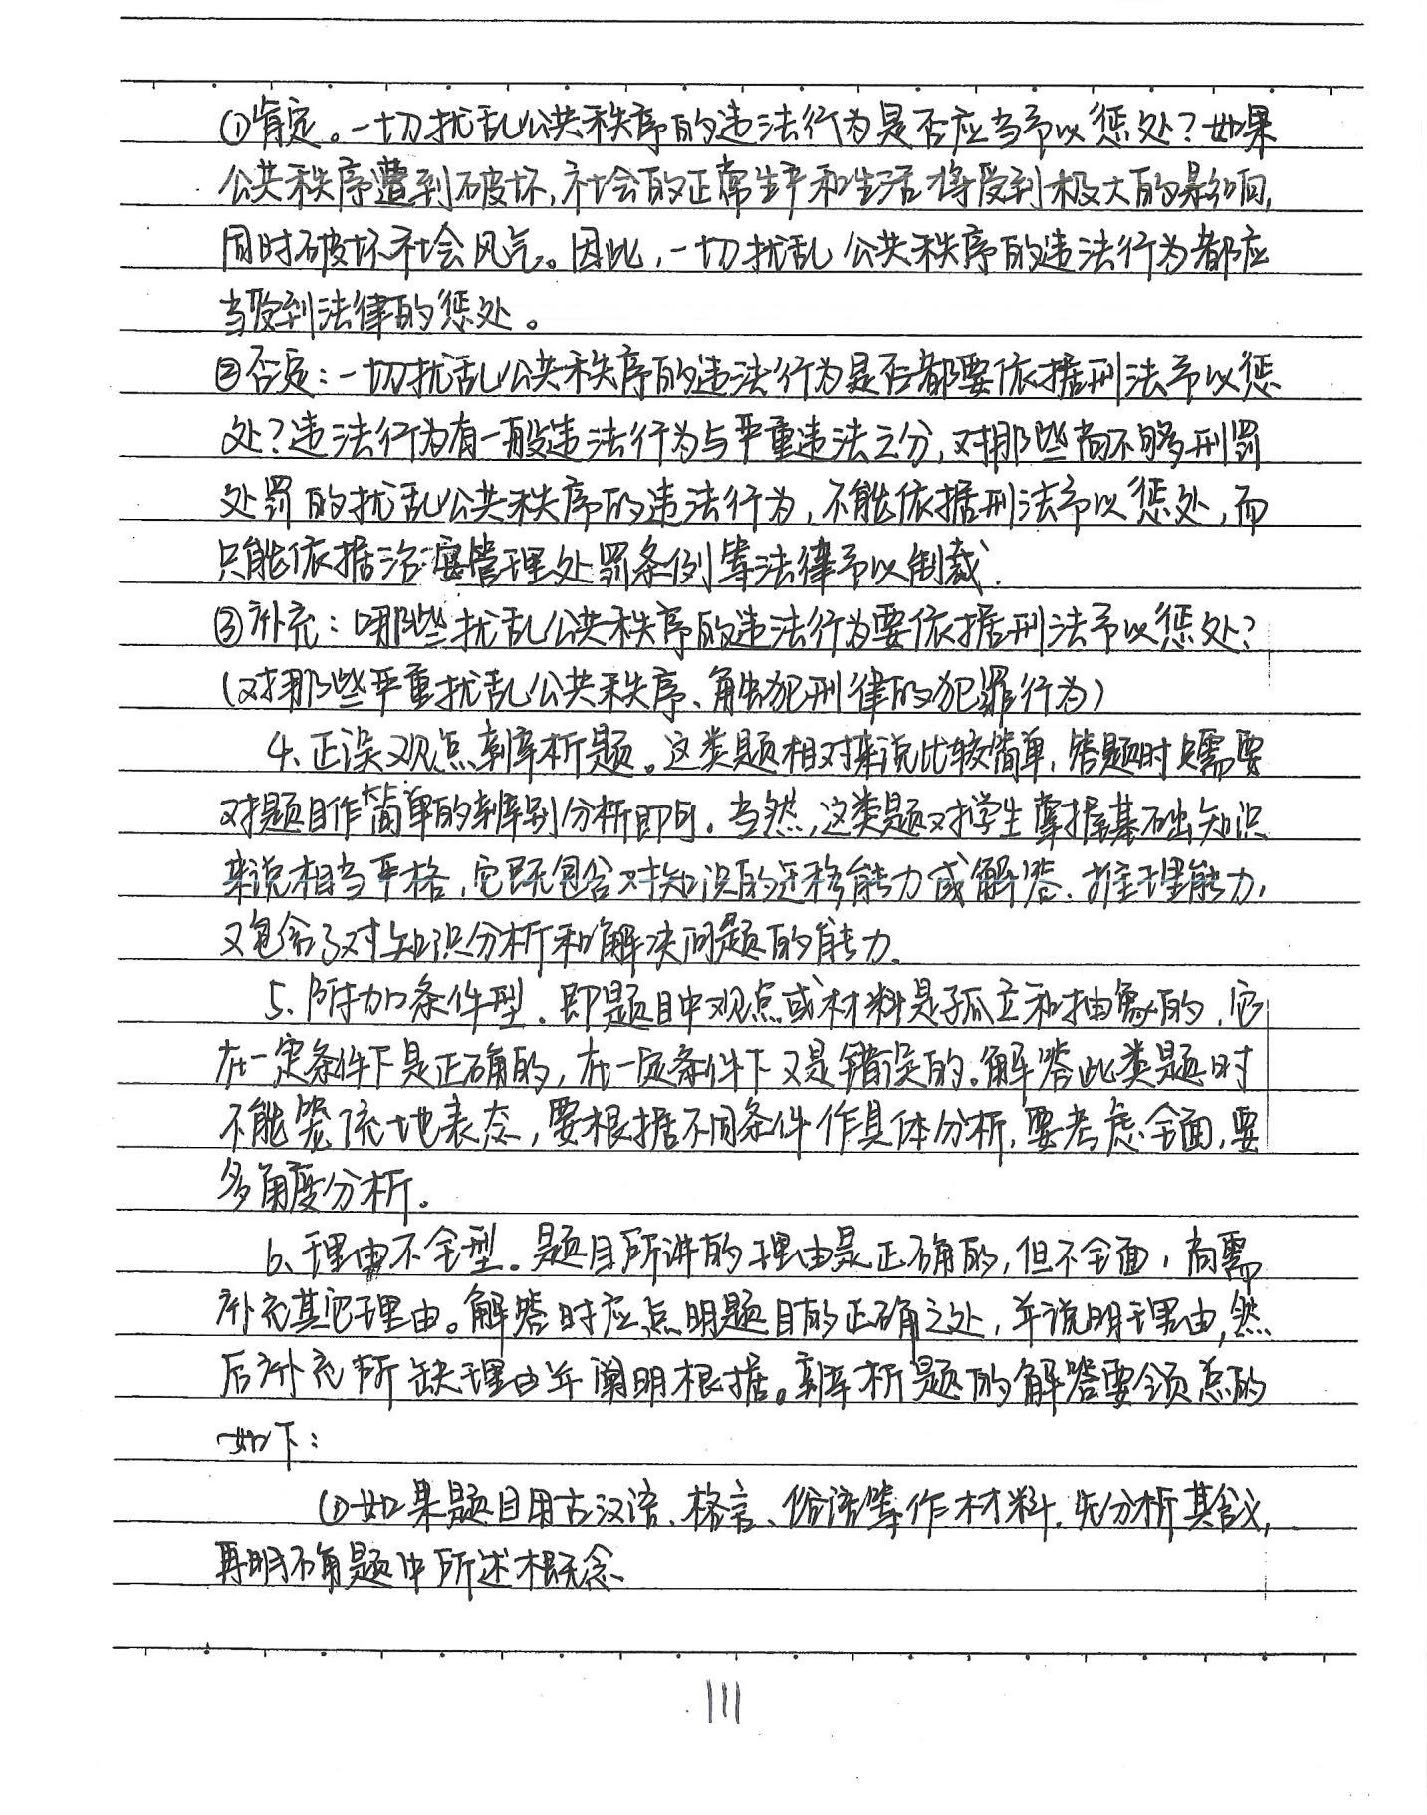 ①肯定。一切扰乱公共秩序的违法行为是否应当予以惩处？如果
公共秩序遭到破坏,社会的正常生产和生活将受到极大的影响,
同时破坏社会风气。因此,一切扰乱公共秩序的违法行为都应
当受到法律的惩处。
②否定:一切扰乱公共秩序的违法行为是否都要依据刑法予以惩
处？违法行为有一般违法行为与严重违法之分,对那些尚不够刑罚
处罚的扰乱公共秩序的违法行为,不能依据刑法予以惩处,而
只能依据治安管理处罚条例等法律予以制裁.
③补充:哪些扰乱公共秩序的违法行为要依据刑法予以惩处？
(对那些严重扰乱公共秩序、触犯刑律的犯罪行为)
4、正误观点辨析题。这类题相对来说比较简单,答题时只需要
对题目作简单的辨别分析即可。当然,这类题对学生掌握基础知识
来说相当严格,它既包含对知识的迁移能力或解答、推理能力,
又包含了对知识分析和解决问题的能力。
5、附加条件型。即题目中观点或材料是孤立和抽象的,它
在一定条件下是正确的,在一定条件下又是错误的。解答此类题时
不能笼统地表态,要根据不同条件作具体分析,要考虑全面,要
多角度分析。
6、理由不全型。题目所讲的理由是正确的,但不全面,尚需
补充其它理由。解答时应点明题目的正确之处,并说明理由,然
后补充所缺理由并阐明根据。辨析题的解答要领总的
如下:
(1)如果题目用古汉语、格言、俗语等作材料,先分析其含义,
再明确题中所述概念、
111